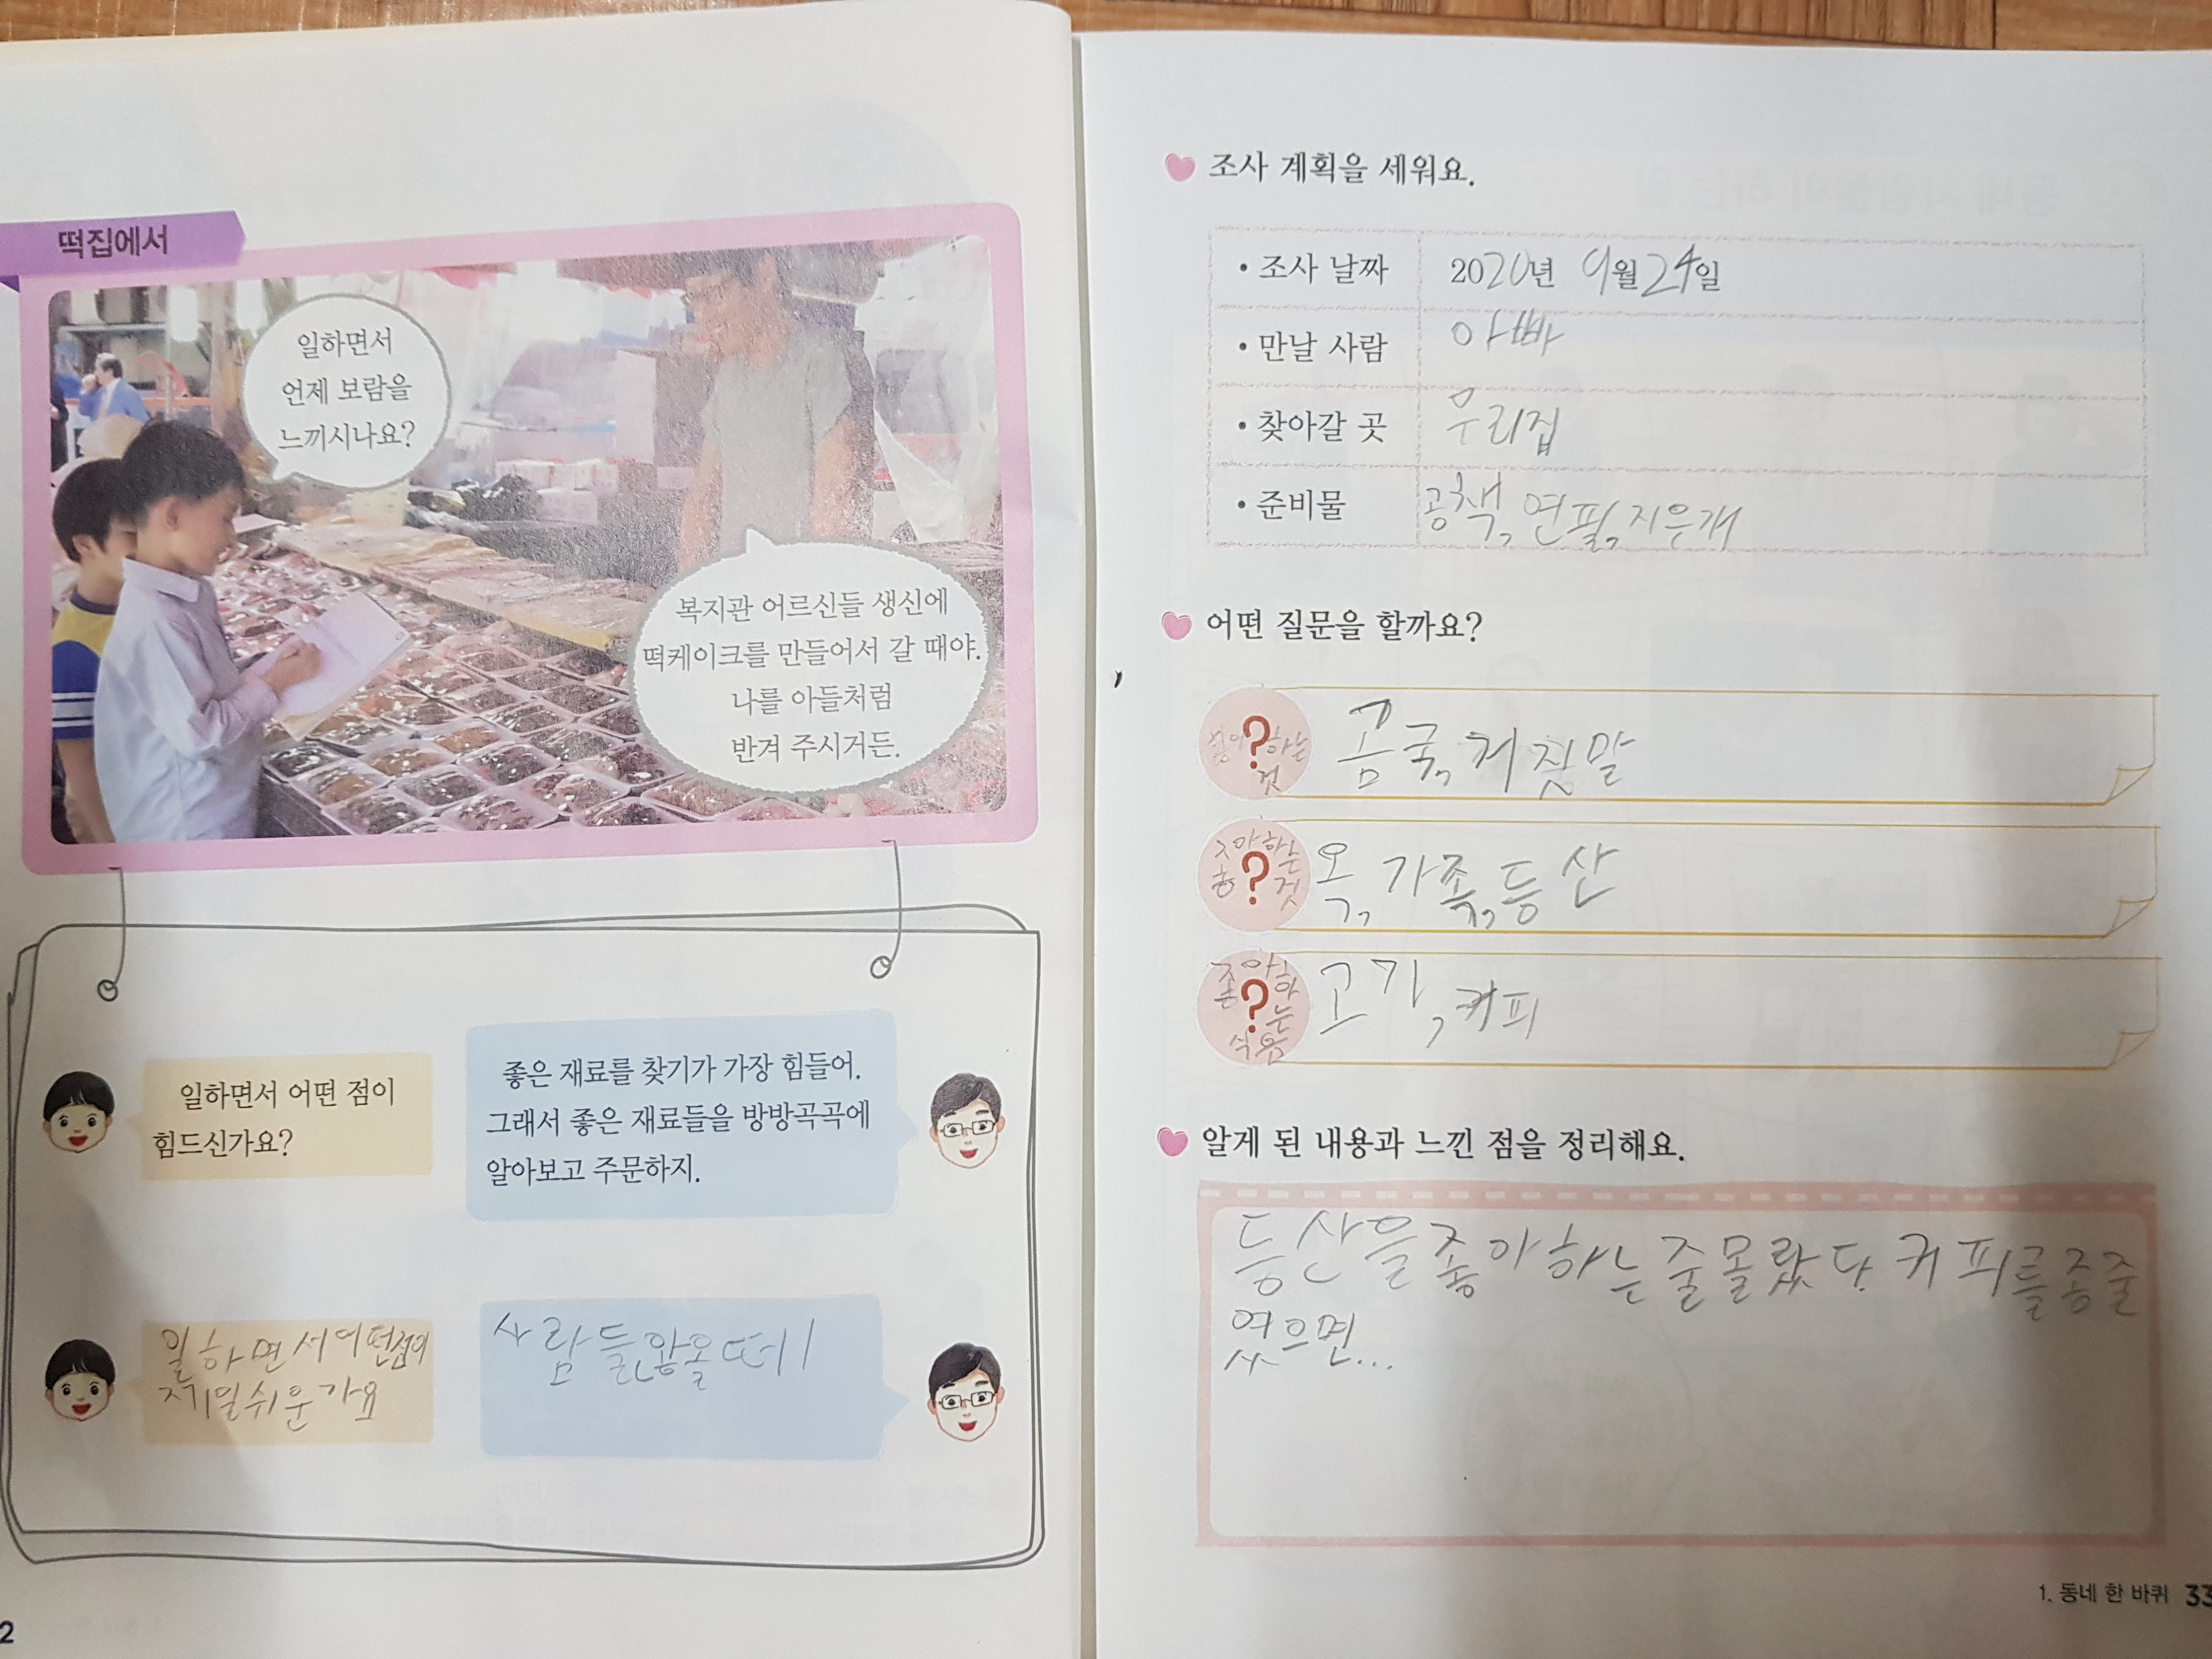 떡집에서
일하면서
언제 보람을
느끼시나요?
복지관 어르신들 생신에
떡케이크를 만들어서 갈 때야.
나를 아들처럼
반겨 주시거든.
일하면서 어떤 점이
힘드신가요?
좋은 재료를 찾기가 가장 힘들어.
그래서 좋은 재료들을 방방곡곡에
알아보고 주문하지.
일하면서어떤점이
제일쉬운가요
사람들안올때
2
조사 계획을 세워요.
• 조사 날짜 2020년 9월 24일
• 만날 사람 아빠
• 찾아갈 곳 우리집
• 준비물 공책, 연필, 지우개
어떤 질문을 할까요?
?
하는
것
콩국, 거짓말
좋아하는
?
것
옥, 가족, 등산
좋아하
?
는
식음
고기, 커피
알게 된 내용과 느낀 점을 정리해요.
등산을좋아하는줄몰랐다. 커피를종줄
였으면...
1. 동네 한 바퀴 33